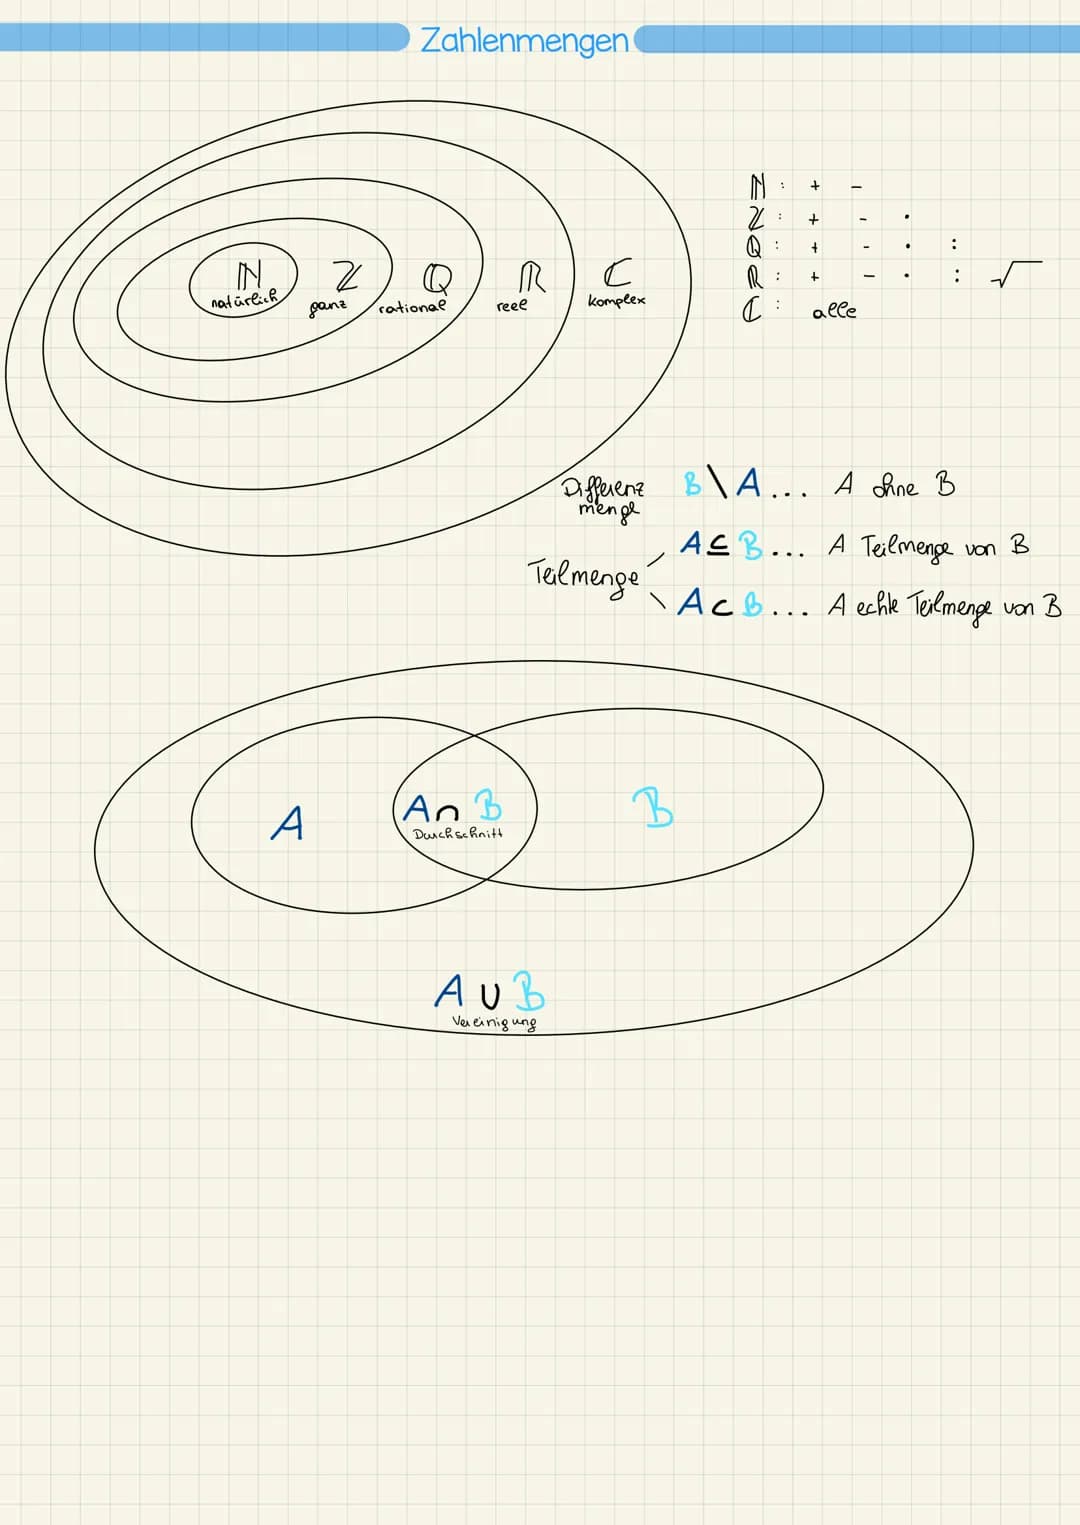 Zahlenmengen
ℕ ℤ ℚ ℝ ℂ
natürlich ganz rational reel komplex
ℕ : + -
ℤ : + - ·
ℚ : + - · :
ℝ : + - · : √
ℂ : alle
Differenz
menge
B \ A ... A ohne B
Teilmenge
A ⊆ B ... A Teilmenge von B
A ⊂ B ... A echte Teilmenge von B
A
A ∩ B
Durchschnitt
B
A ∪ B
Vereinigung